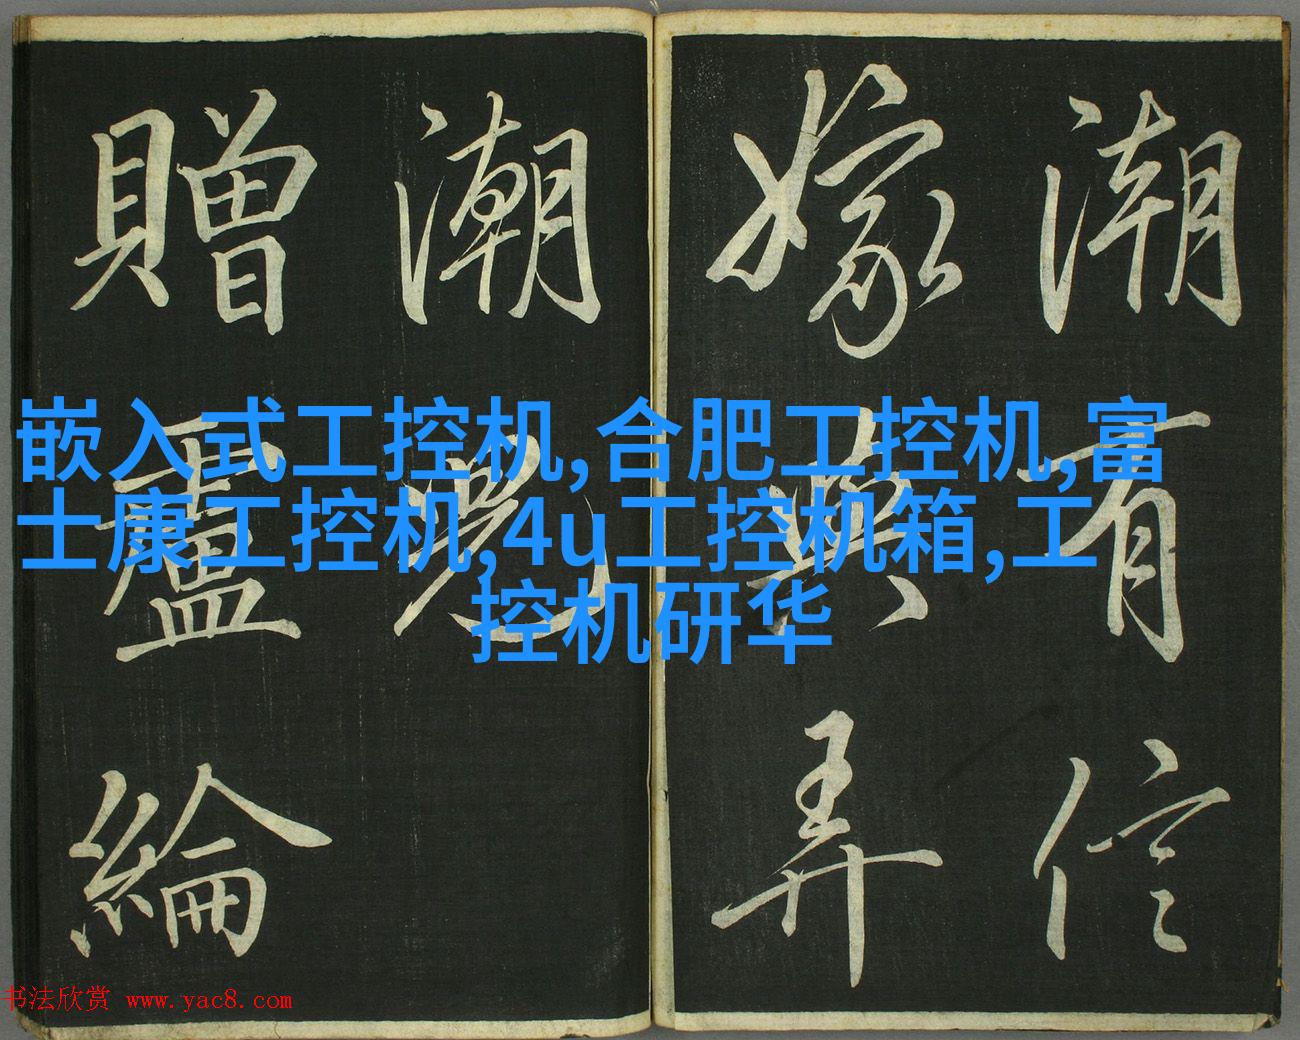 潮有信
嫁與弄
潮兒
贈盧綸
嵌入式工控机,合肥工控机,富
士康工控机,4u工控机箱,工
控机研华
书法欣赏 www.yac8.com